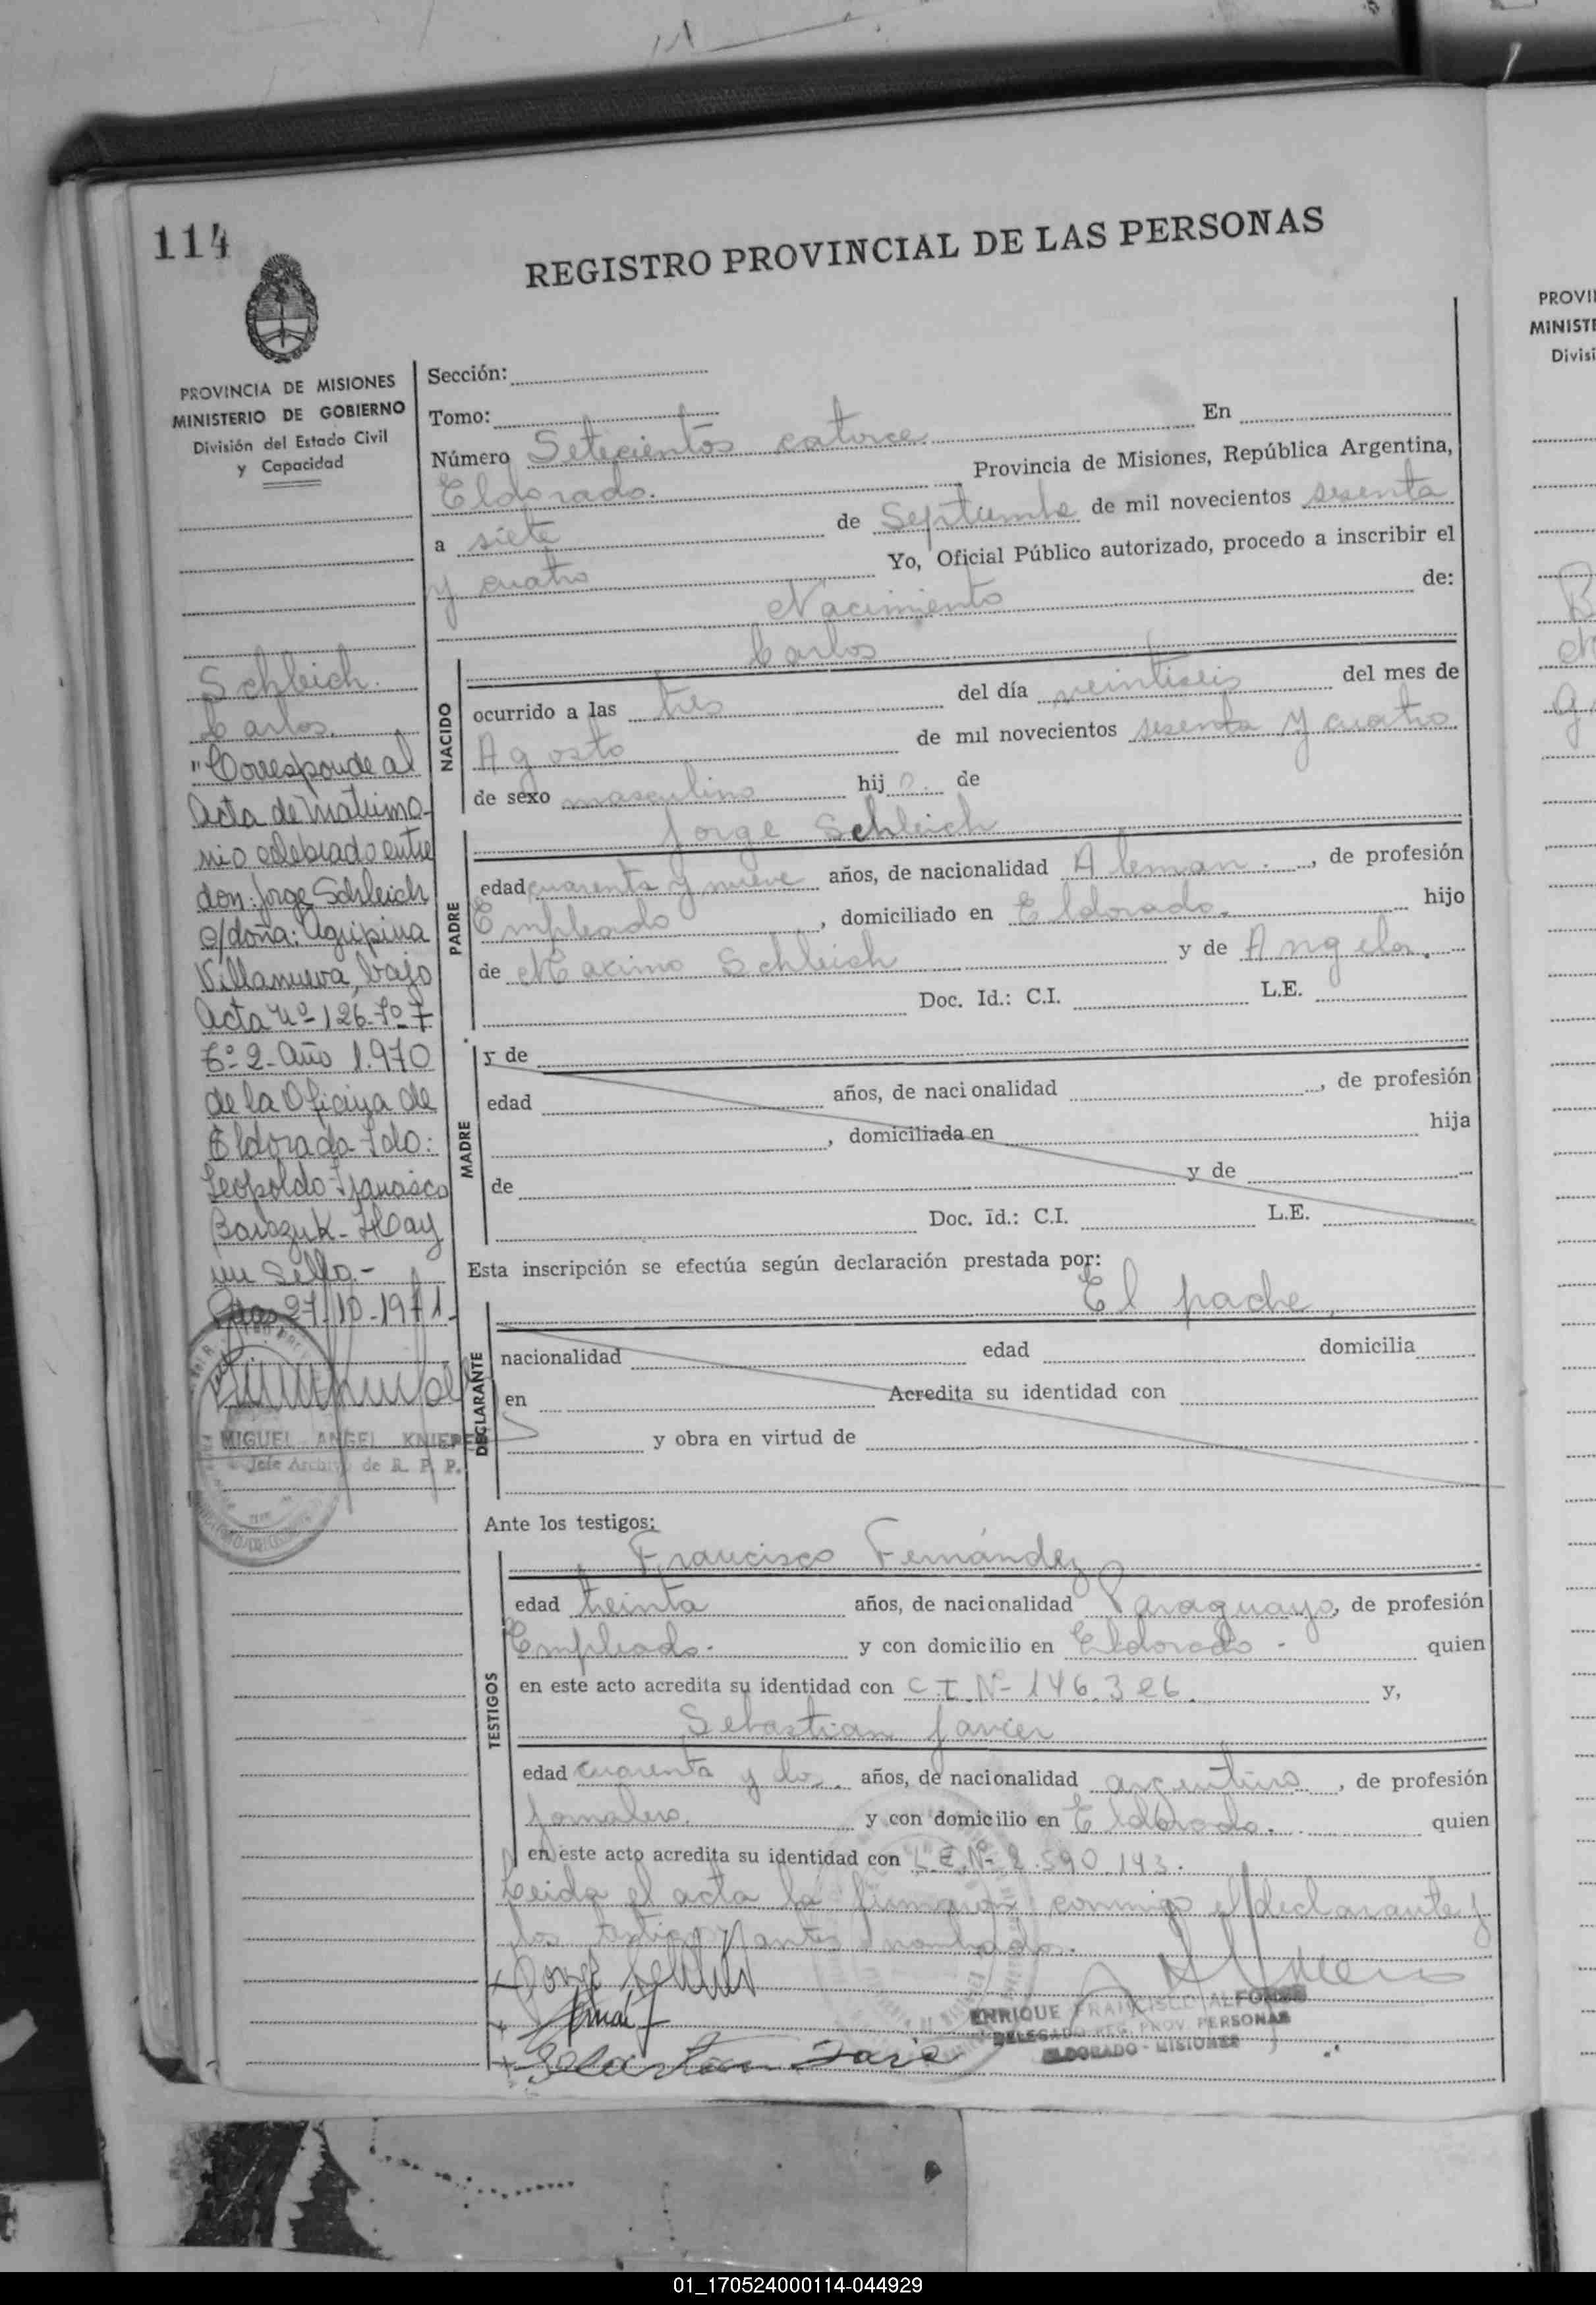 114
REGISTRO PROVINCIAL DE LAS PERSONAS
PROVINCIA DE MISIONES
MINISTERIO DE GOBIERNO
División del Estado Civil
y Capacidad
Schleich.
Carlos.
"Corresponde al
Acta de Matrimo-
nio celebrado entre
don: Jorge Schleich
c/doña: Agripina
Villanueva, bajo
Acta Nº 126-Fº 7
Tº 2-Año 1.970
de la Oficina de
Eldorado-Fdo:
Leopoldo Francisco
Hay
un Sello.-
27-10-1971-
MIGUEL ANGEL KNIEPE
Jefe Archivo de R. P. P.
Sección:
Tomo:
Número Setecientos catorce En
Eldorado. Provincia de Misiones, República Argentina,
a siete de Septiembre de mil novecientos sesenta
y cuatro Yo, Oficial Público autorizado, procedo a inscribir el
Nacimiento de:
Carlos
NACIDO
ocurrido a las tres del día veintiseis del mes de
Agosto de mil novecientos sesenta y cuatro
de sexo masculino hijo de
Jorge Schleich
PADRE
edad cuarenta y nueve años, de nacionalidad Aleman. , de profesión
Empleado , domiciliado en Eldorado. hijo
de Maximo Schleich y de Angela.
Doc. Id.: C.I. L.E.
MADRE
y de
edad años, de nacionalidad , de profesión
, domiciliada en hija
de y de
Doc. Id.: C.I. L.E.
Esta inscripción se efectúa según declaración prestada por:
El padre,
DECLARANTE
nacionalidad edad domicilia
en Acredita su identidad con
y obra en virtud de
Ante los testigos:
Francisco Fernández
TESTIGOS
edad treinta años, de nacionalidad Paraguayo, de profesión
Empleado. y con domicilio en Eldorado - quien
en este acto acredita su identidad con C I Nº 146.326. y,
Sebastian Javier
edad cuarenta y dos. años, de nacionalidad argentino , de profesión
jornalero. y con domicilio en Eldorado. quien
en este acto acredita su identidad con L.E. Nº 2.590.143.
Leida el acta la firmaron conmigo el declarante y
los testigos antes nombrados.
ENRIQUE FRANCISCO ALFONSO
DELEGADO REG. PROV. PERSONAS
ELDORADO - MISIONES
PROVI
MINIST
Divisi
01_170524000114-044929